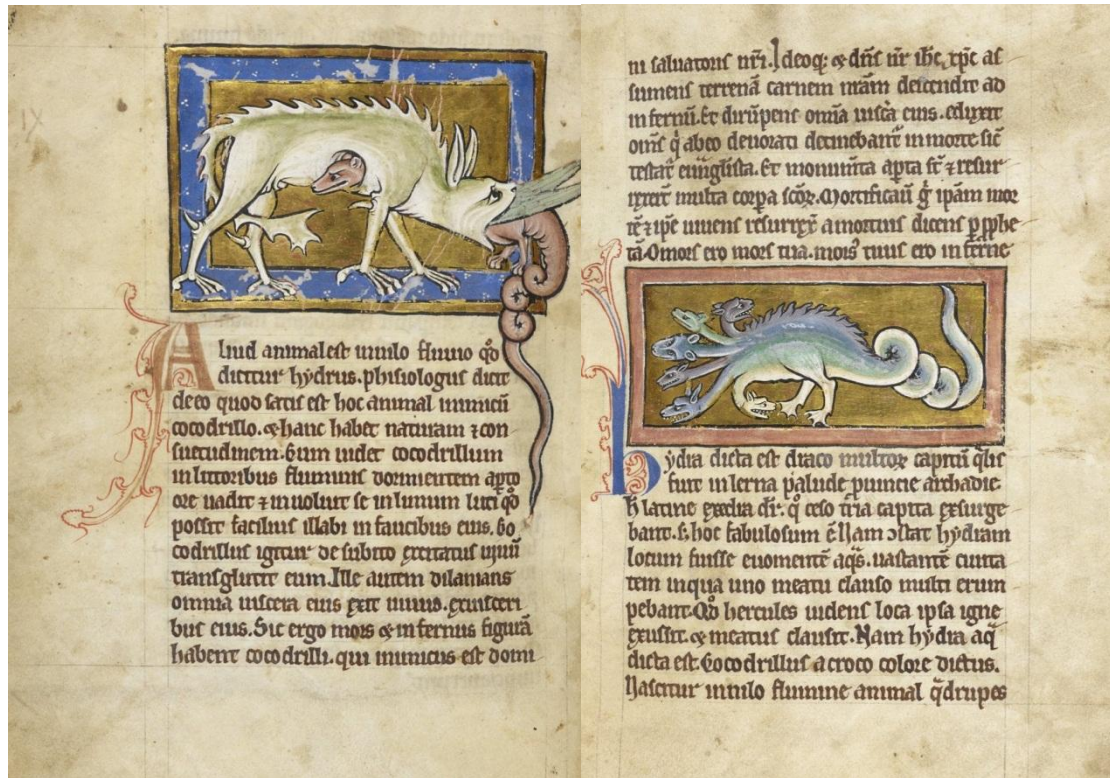 Aliud animal est in nilo fluuio qđ
dicitur hydrus. phisiologus dicit
de eo quod satis est hoc animal inimicū
cocodrillo. & hanc habet naturam ⁊ con
suetudinem. Cum uidet cocodrillum
in littoribus fluminis dormientem apto
ore uadit ⁊ inuoluit se in limum luti qo
possit facilius illabi in faucibus eius. Co
codrillus igitur de subito excitatus uiuū
transglutit eum. Ille autem dilanians
omnia uiscera eius exit uiuus. ex uisceri
bus eius. Sic ergo mors & infernus figurā
habent cocodrilli. qui inimicus est domi
ni saluatoris nri. Ideoq; & dns nr ihc xpc as
sumens terrenā carnem nrām descendit ad
infernū. Et dirūpens omīa uiscā eius. eduxit
oms q̇ ab eo deuorati detinebantr in morte sic
testat euuglista. Et monumta apta st ⁊ resur
rexert multa corpa scōr. Mortificauit g̊ ipām mor
tē ⁊ ipe uiuens resurrexit a mortuis dicens p pphe
tā. O mors ero mors tua. morsˀ tuus ero inferne
hydia dicta est draco multoꝝ capitū qlis
fuit in lerna palude prouincie archadie
h latine exedia dr. q ceso tria capita exsurge
bant. s; hoc fabulosum ē. Nam ↄstat hydiam
locum fuisse euomentē aqs. uastantē ciuita
tem in qua uno meatu clauso multi erum
pebant. Qđ hercules uidens loca ipsa igne
exussit. & meatus clausit. Nam hydia aq
dicta est. Cocodrillus a croco colore dictus.
Nascitur in nilo flumine animal qdrupes